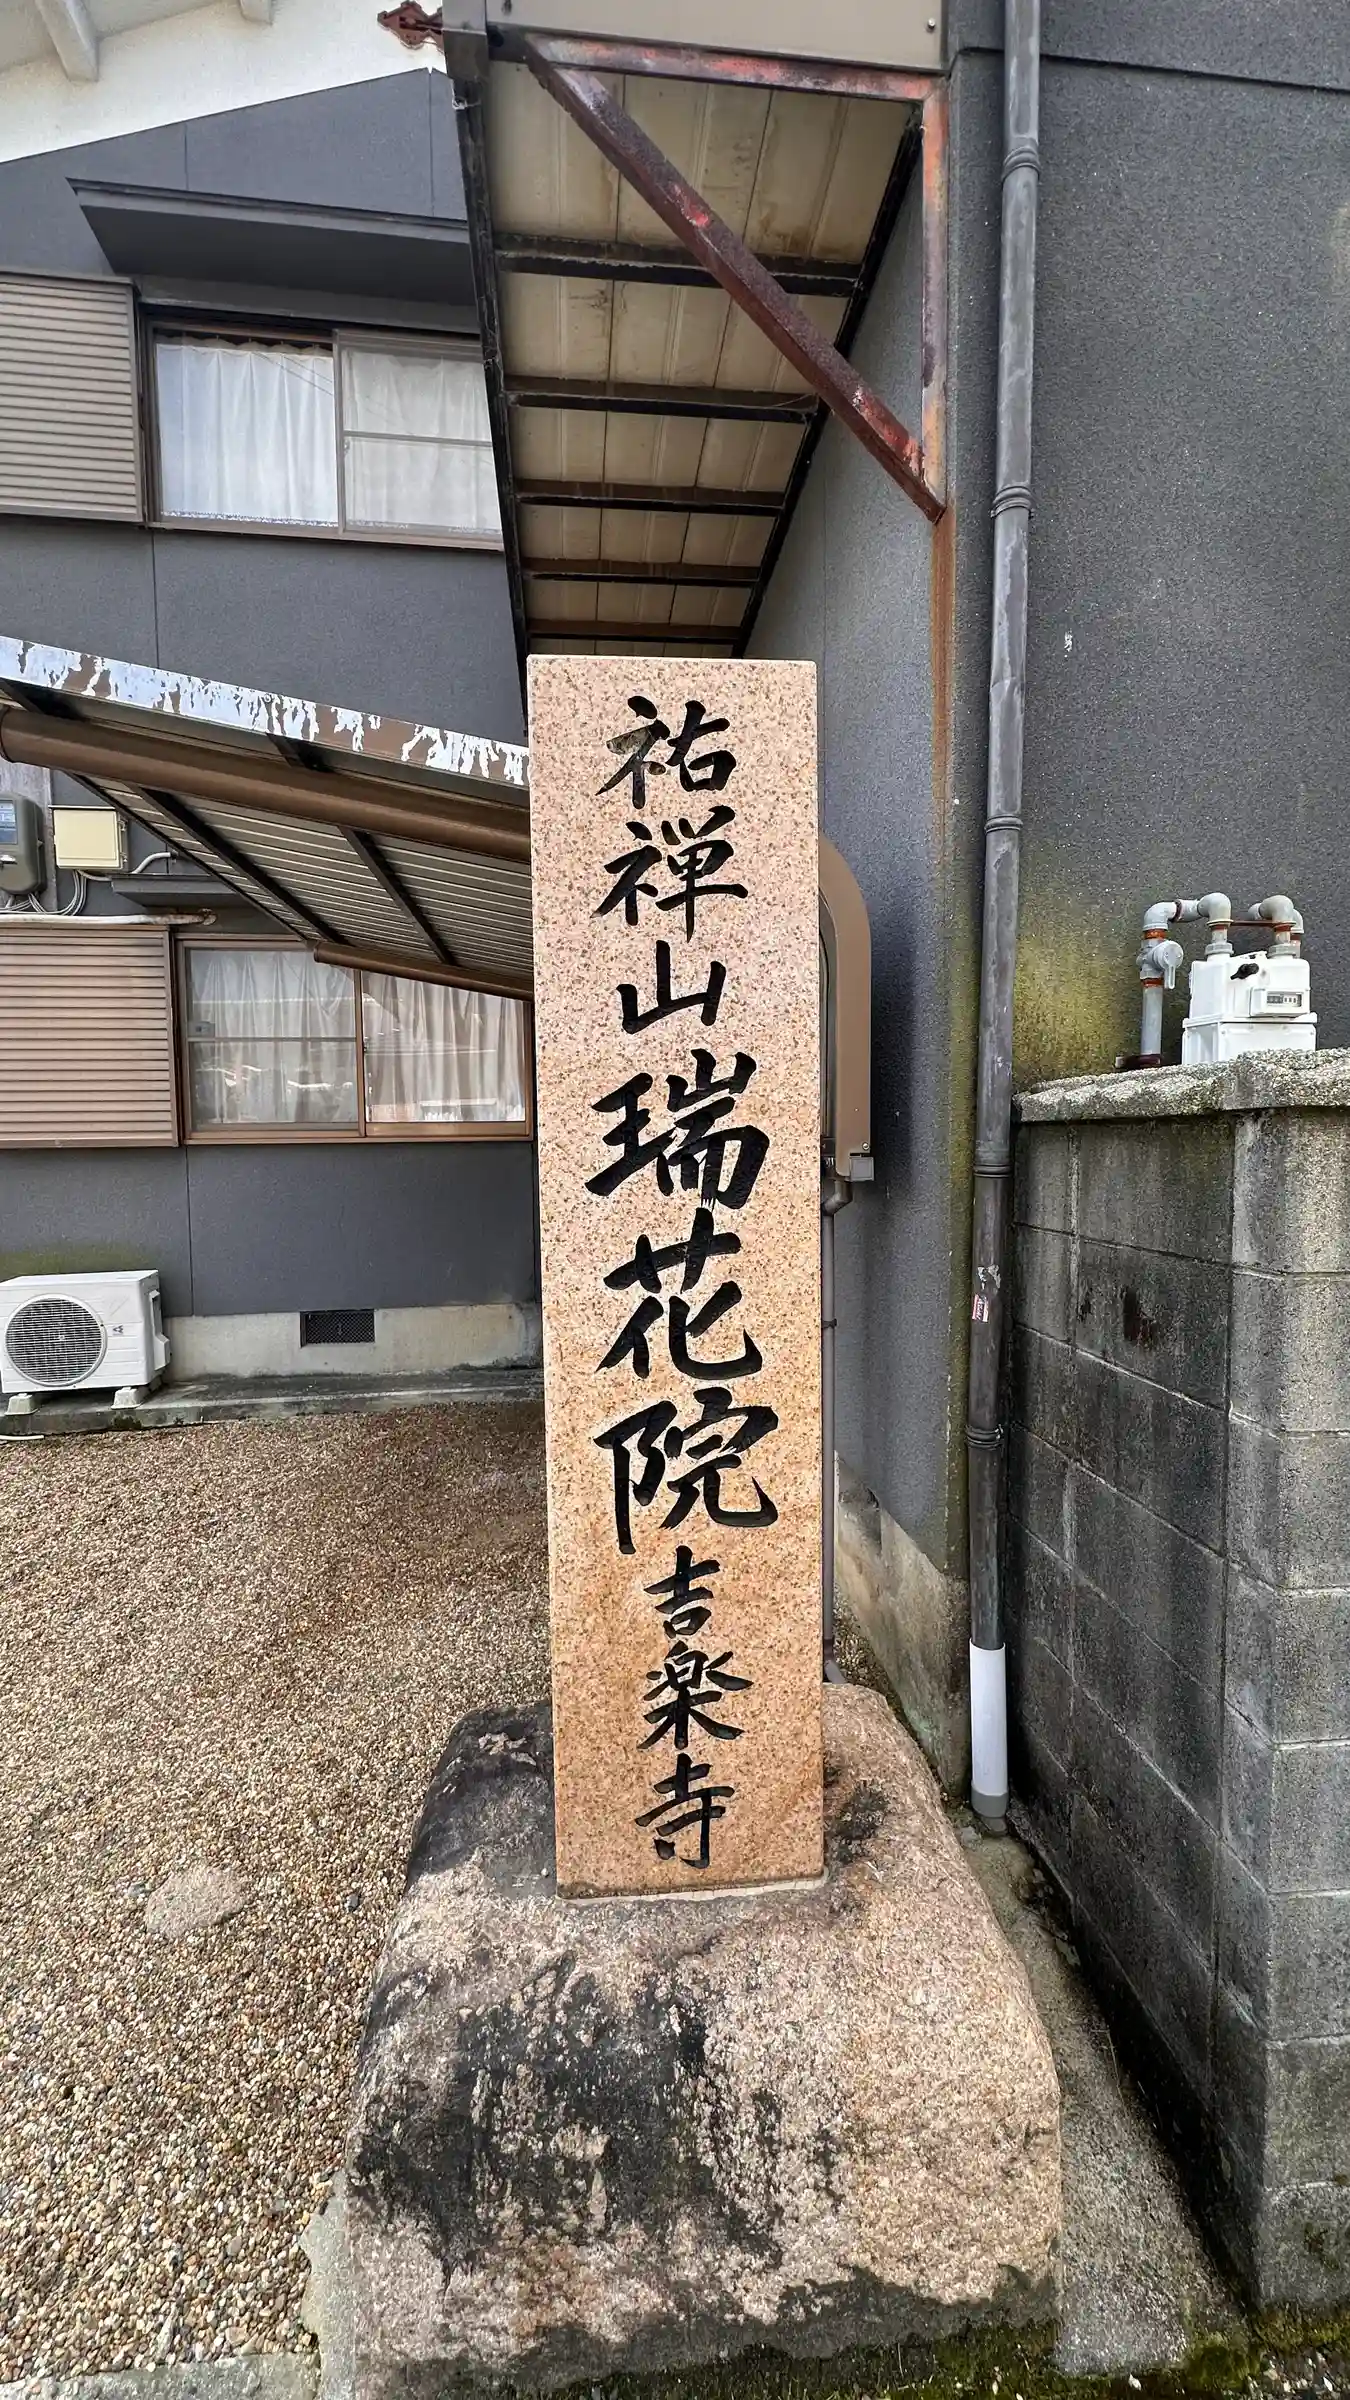 祐禅山瑞花院吉楽寺